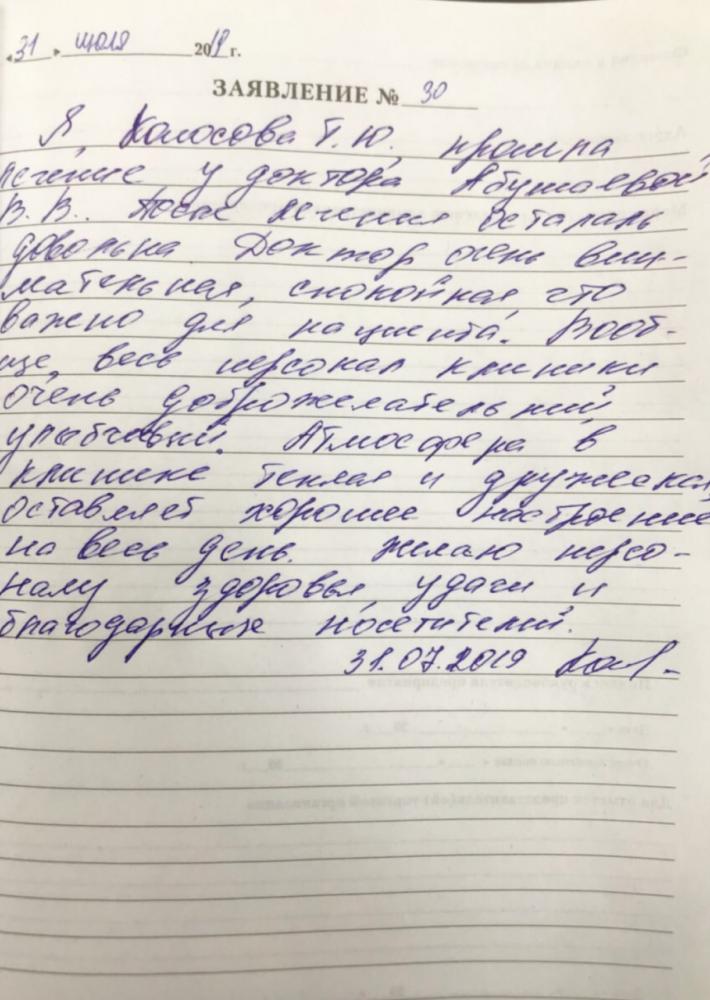 «31» июля 2019 г.
ЗАЯВЛЕНИЕ № 30
Я, Колосова Т.Ю, прошла
лечение у доктора Абушаевой
В.В.. После лечения осталась
довольна Доктор очень вни-
мательная, спокойная что
важно для пациента. Вооб-
ще, весь персонал клиники
очень доброжелательный,
улыбчивый. Атмосфера в
клинике теплая и дружеская,
оставляет хорошее настроение
на весь день. Желаю персо-
налу здоровья, удачи и
благодарных посетителей.
31.07.2019